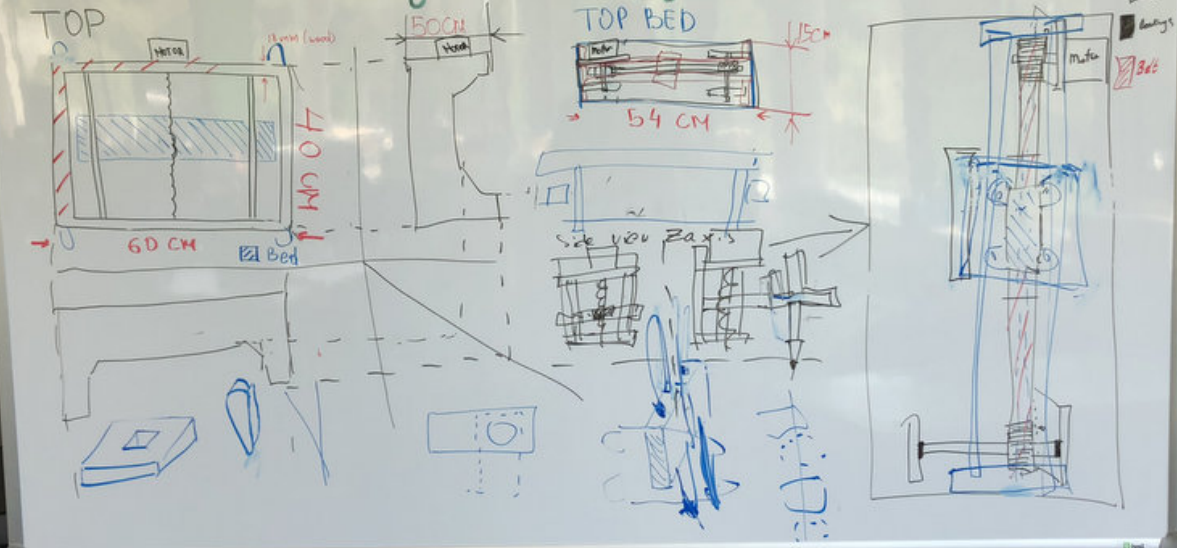 TOP
MOTOR
18mm (wood)
40 CM
60 CM
Bed
50CM
MOTOR
TOP BED
Motor
15cm
54 CM
Side view Z axis
Motor
Belt